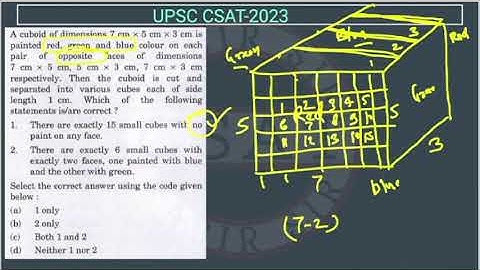 UPSC CSAT-2023
A cuboid of dimensions 7 cm × 5 cm × 3 cm is
painted red, green and blue colour on each
pair of opposite faces of dimensions
7 cm × 5 cm, 5 cm × 3 cm, 7 cm × 3 cm
respectively. Then the cuboid is cut and
separated into various cubes each of side
length 1 cm. Which of the following
statements is/are correct ?
1. There are exactly 15 small cubes with no
paint on any face.
2. There are exactly 6 small cubes with
exactly two faces, one painted with blue
and the other with green.
Select the correct answer using the code given
below :
(a) 1 only
(b) 2 only
(c) Both 1 and 2
(d) Neither 1 nor 2
Green
Blue
Red
1 2 3
1 2 3 4 5
6 7 8 9
11 12 13 14 15
Red
5
5
Green
3
1 1 7
Blue
(7-2)